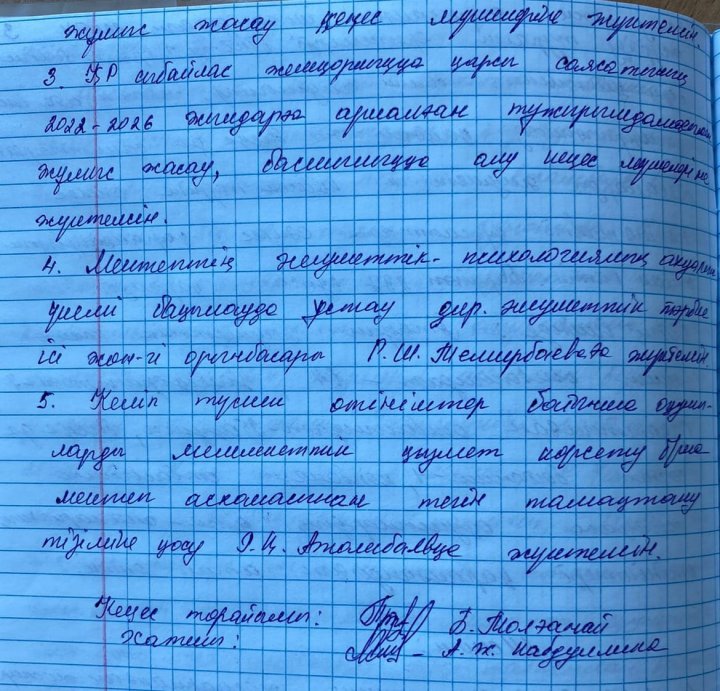 жұмыс жасау кеңес мүшелеріне жүктелсін.
3. ҚР сыбайлас жемқорлыққа қарсы саясатының
2022-2026 жылдарға арналған тұжырымдамасымен
жұмыс жасау, басшылыққа алу кеңес мүшелеріне
жүктелсін.
4. Мектептің әлеуметтік-психологиялық ахуалын
үнемі бақылауда ұстау дир. әлеуметтік тәрбие
ісі жөн-гі орынбасары Р.Ш. Темирбаеваға жүктелсін.
5. Келіп түскен өтініштер бойынша оқушы-
ларды мемлекеттік қызмет көрсету бойынша
мектеп асханасынан тегін тамақтану
тізіміне қосу жүктелсін.
Кеңес төрайымы: Б. Толғанай
Хатшы: А.Ж. Набдуллина